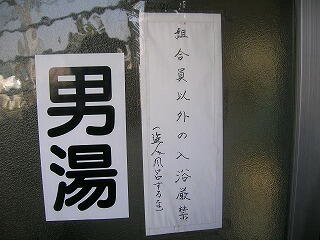 男湯
組合員以外の入浴厳禁
(盗人風呂するな)